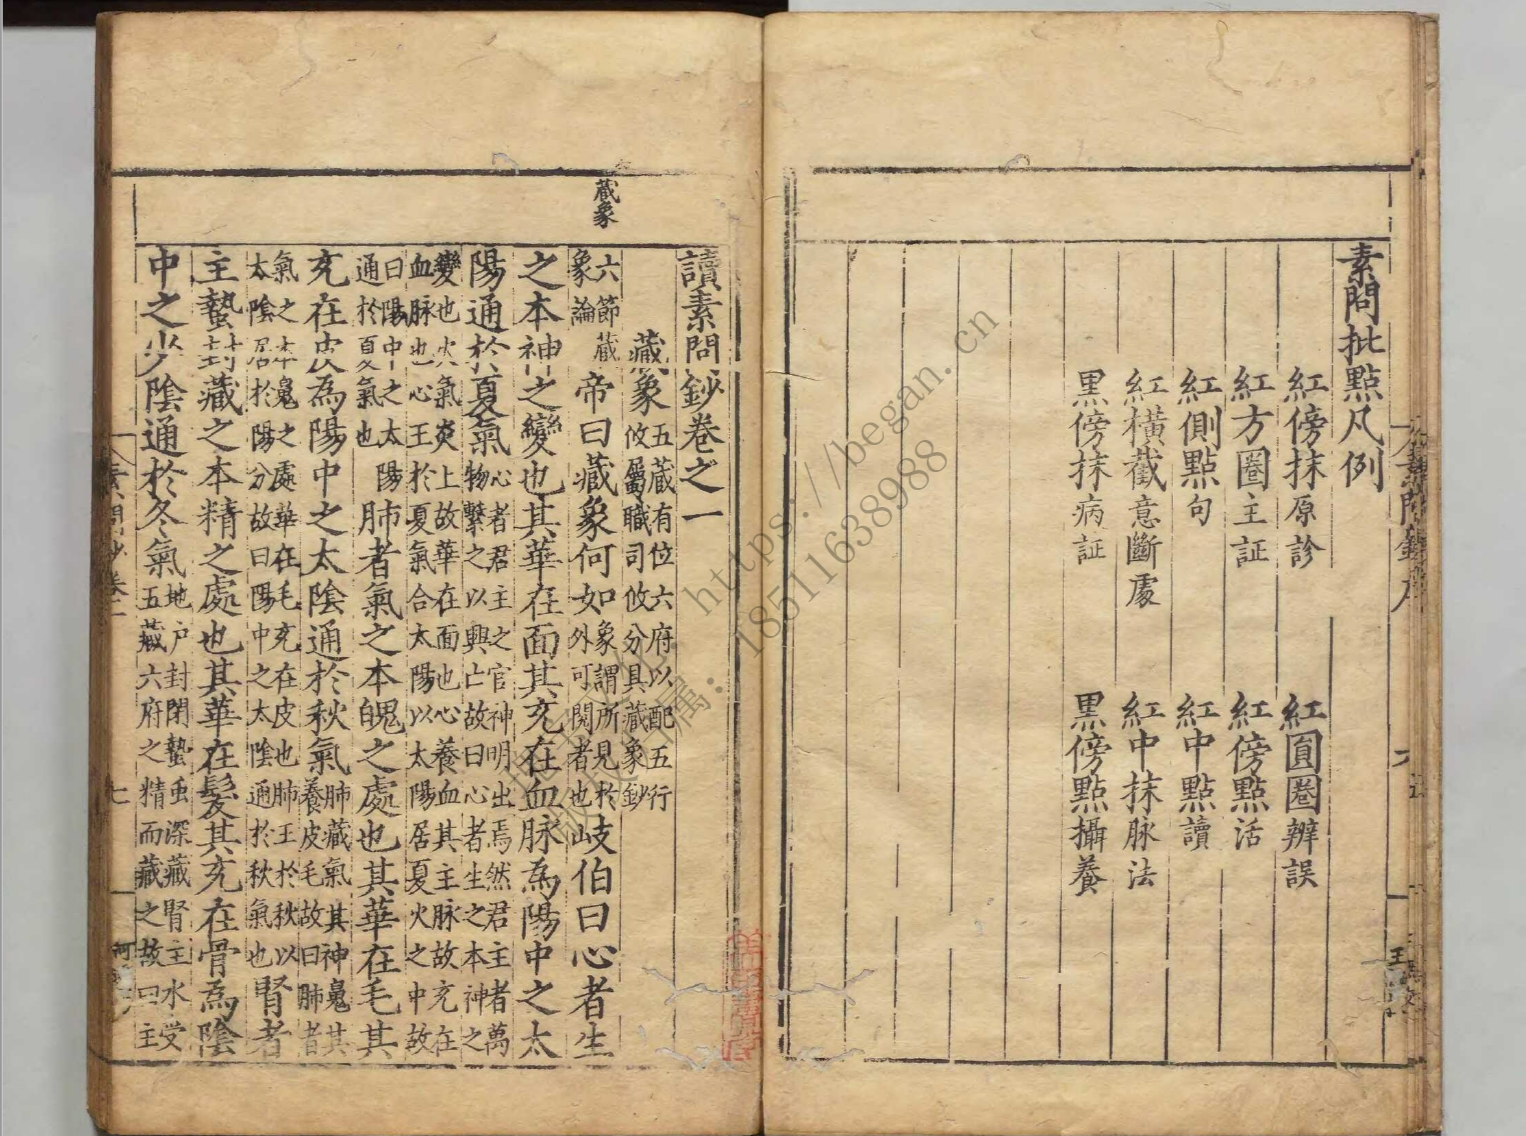 素問批點凡例
紅傍抹原診　紅圓圈辨誤
紅方圈主証　紅傍點活
紅側點句　紅中點讀
紅橫截意斷處　紅中抹脉法
黑傍抹病証　黑傍點攝養
藏象
讀素問鈔卷之一
藏象
五藏有位六府以配五行
攸屬職司攸分具藏象鈔
六節藏
象論
帝曰藏象何如
象謂所見於
外可閱者也
岐伯曰心者生
之本神之變也其華在面其充在血脉為陽中之太
陽通於夏氣
心者君主之官神明出焉然君主者萬
物繫之以興亡故曰心者生之本神之
變也火氣炎上故華在面也心養血其主脉故充在
血脉也心王於夏氣合太陽以太陽居夏火之中故
曰陽中之太陽
通於夏氣也
肺者氣之本魄之處也其華在毛其
充在皮為陽中之太陰通於秋氣
肺藏氣其神䰟其
養皮毛故曰肺者
氣之本䰟之處華在毛充在皮也肺王於秋以
太陰居於陽分故曰陽中之太陰通於秋氣也
腎者
主蟄封藏之本精之處也其華在髮其充在骨為陰
中之少陰通於冬氣
地户封閉蟄虫深藏腎主水受
五藏六府之精而藏之故曰主
https://began.cn
18511638988